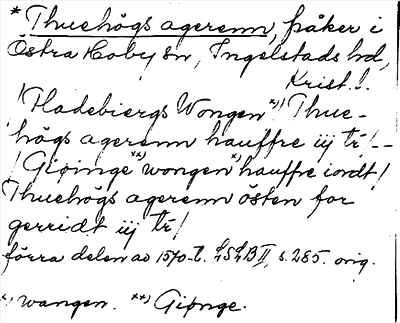 * Thuehögs agerenn, fåker i
Östra Hoby sn, Ingelstads hd,
Krist. l.
/Hadebiergs Wongen *) / Thue-
högs agerenn hauffre iij tr/--
/Giønge **) wongen *) hauffre iordt/
Thuehögs agerenn östen for
gerridt iij tr/
förra delen av 1570-t. LSLB II, s. 285. orig.
*) wangen. **) Giønge.